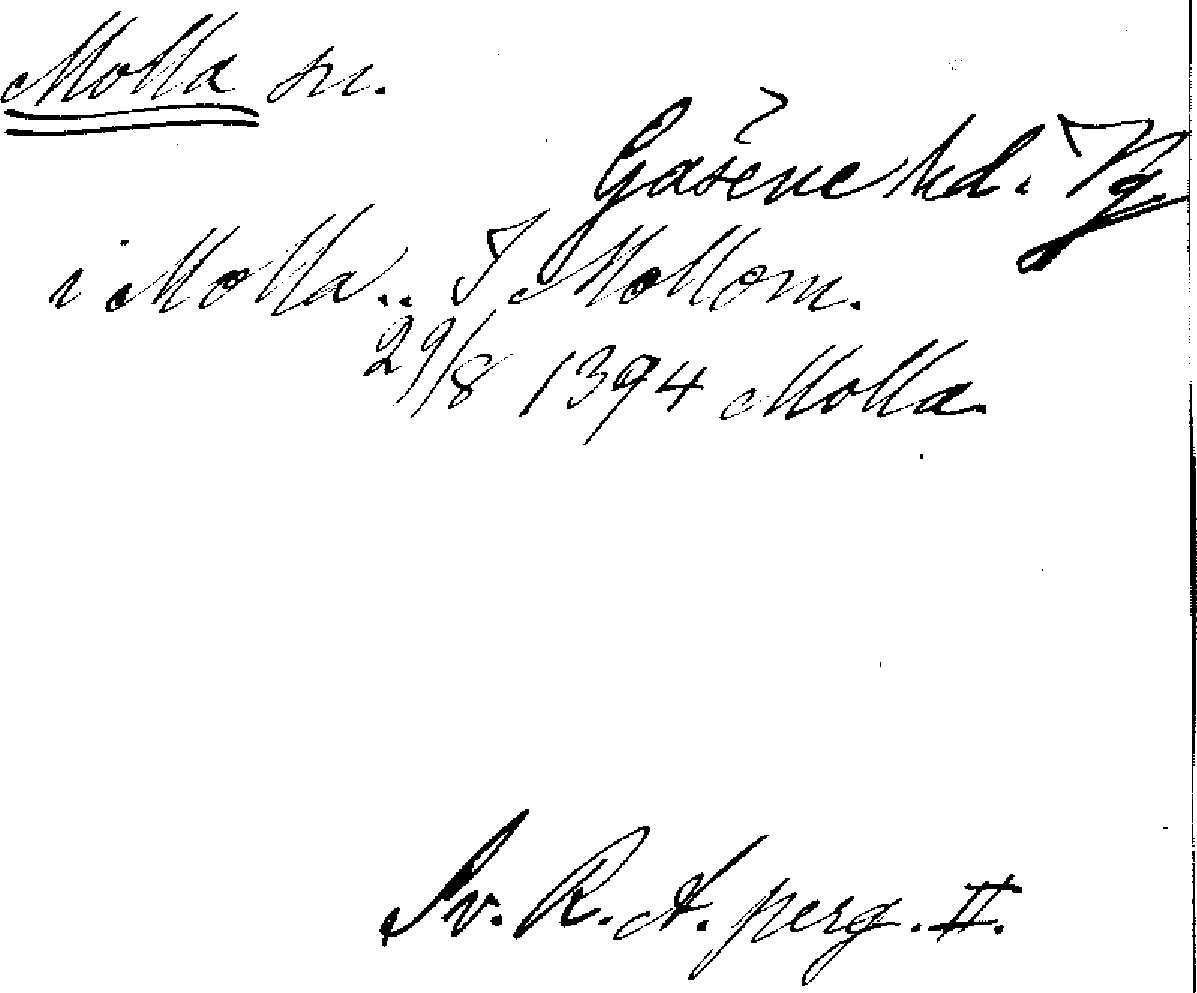 Molla sn.
Gäsene hd. Vg
i Molla.. I Mollom.
29/8 1394 Molla.
Sv. R. A. perg. II.